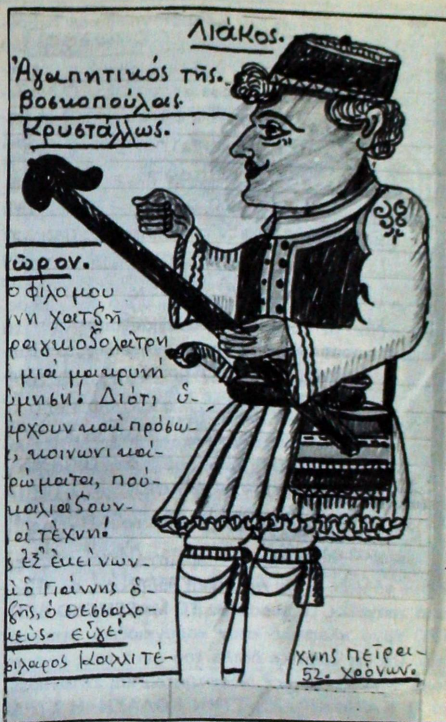 Λιάκος.
Ἀγαπητικός τῆς.
βοσκοπούλας
Κρυστάλλως.
ῶρον.
ό φίλο μου
ννη Χατζῆ
ραγκιοζολάτρη
μιά μακρυνή
ύμηση! Διότι ὑ-
άρχουν καί πρόσω-
, κοινωνικαί-
ρώματα, πού-
καλιάζουν-
αί τέχνη!
ς ἐξ ἐκείνων-
ὁ Γιάννης ὁ-
ζῆς, ὁ Θεσσαλο-
κεύς. εὖγε!
φίλαρος καλλιτέ-
χνης πειραι-
52. χρόνων.